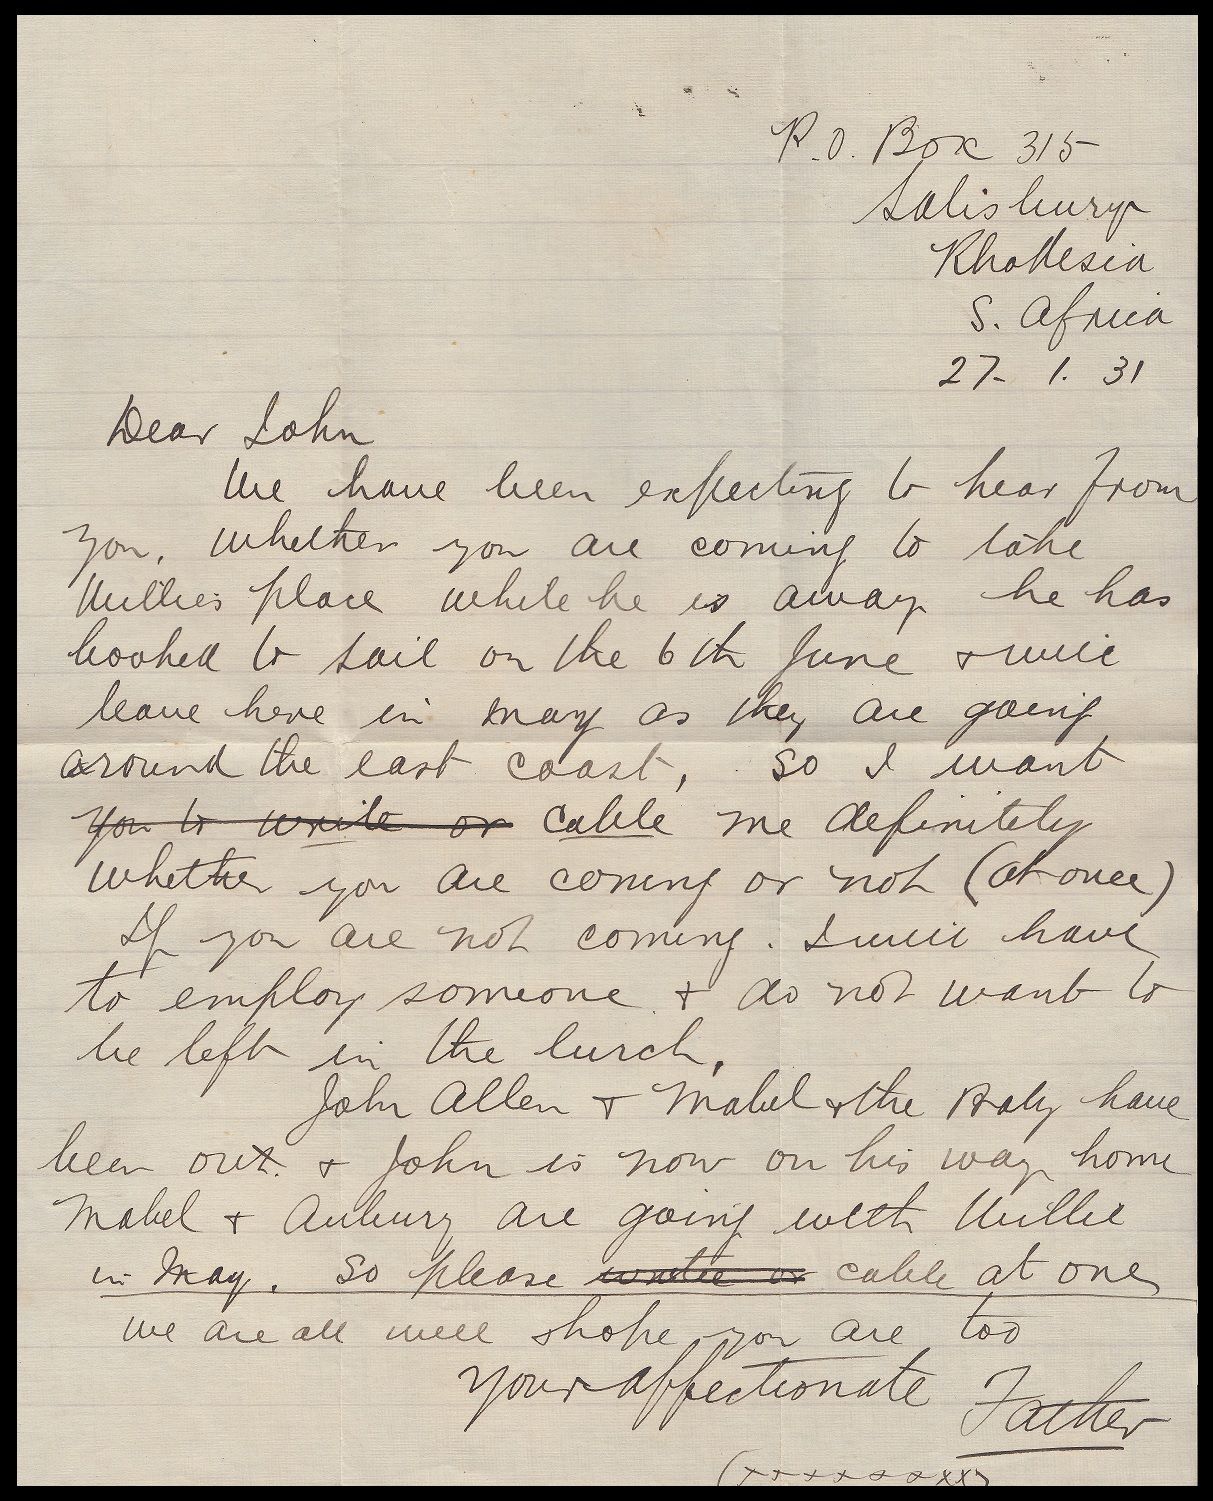 P.O. Box 315
Salisbury
Rhodesia
S. Africa
27. 1. 31
Dear John
We have been expecting to hear from
you, whether you are coming to take
Willies place while he is away he has
booked to sail on the 6th June & will
leave here in May as they are going
around the east coast, so I want
you to write or cable me definitely
whether you are coming or not (at once)
If you are not coming. I will have
to employ someone & do not want to
be left in the lurch,
John Allen & Mabel & the Baby have
been out. & John is now on his way home
Mabel & Aubury are going with Willie
in May. So please write or cable at once
we are all well & hope you are too
Your affectionate Father
(xxxxxxxxx)